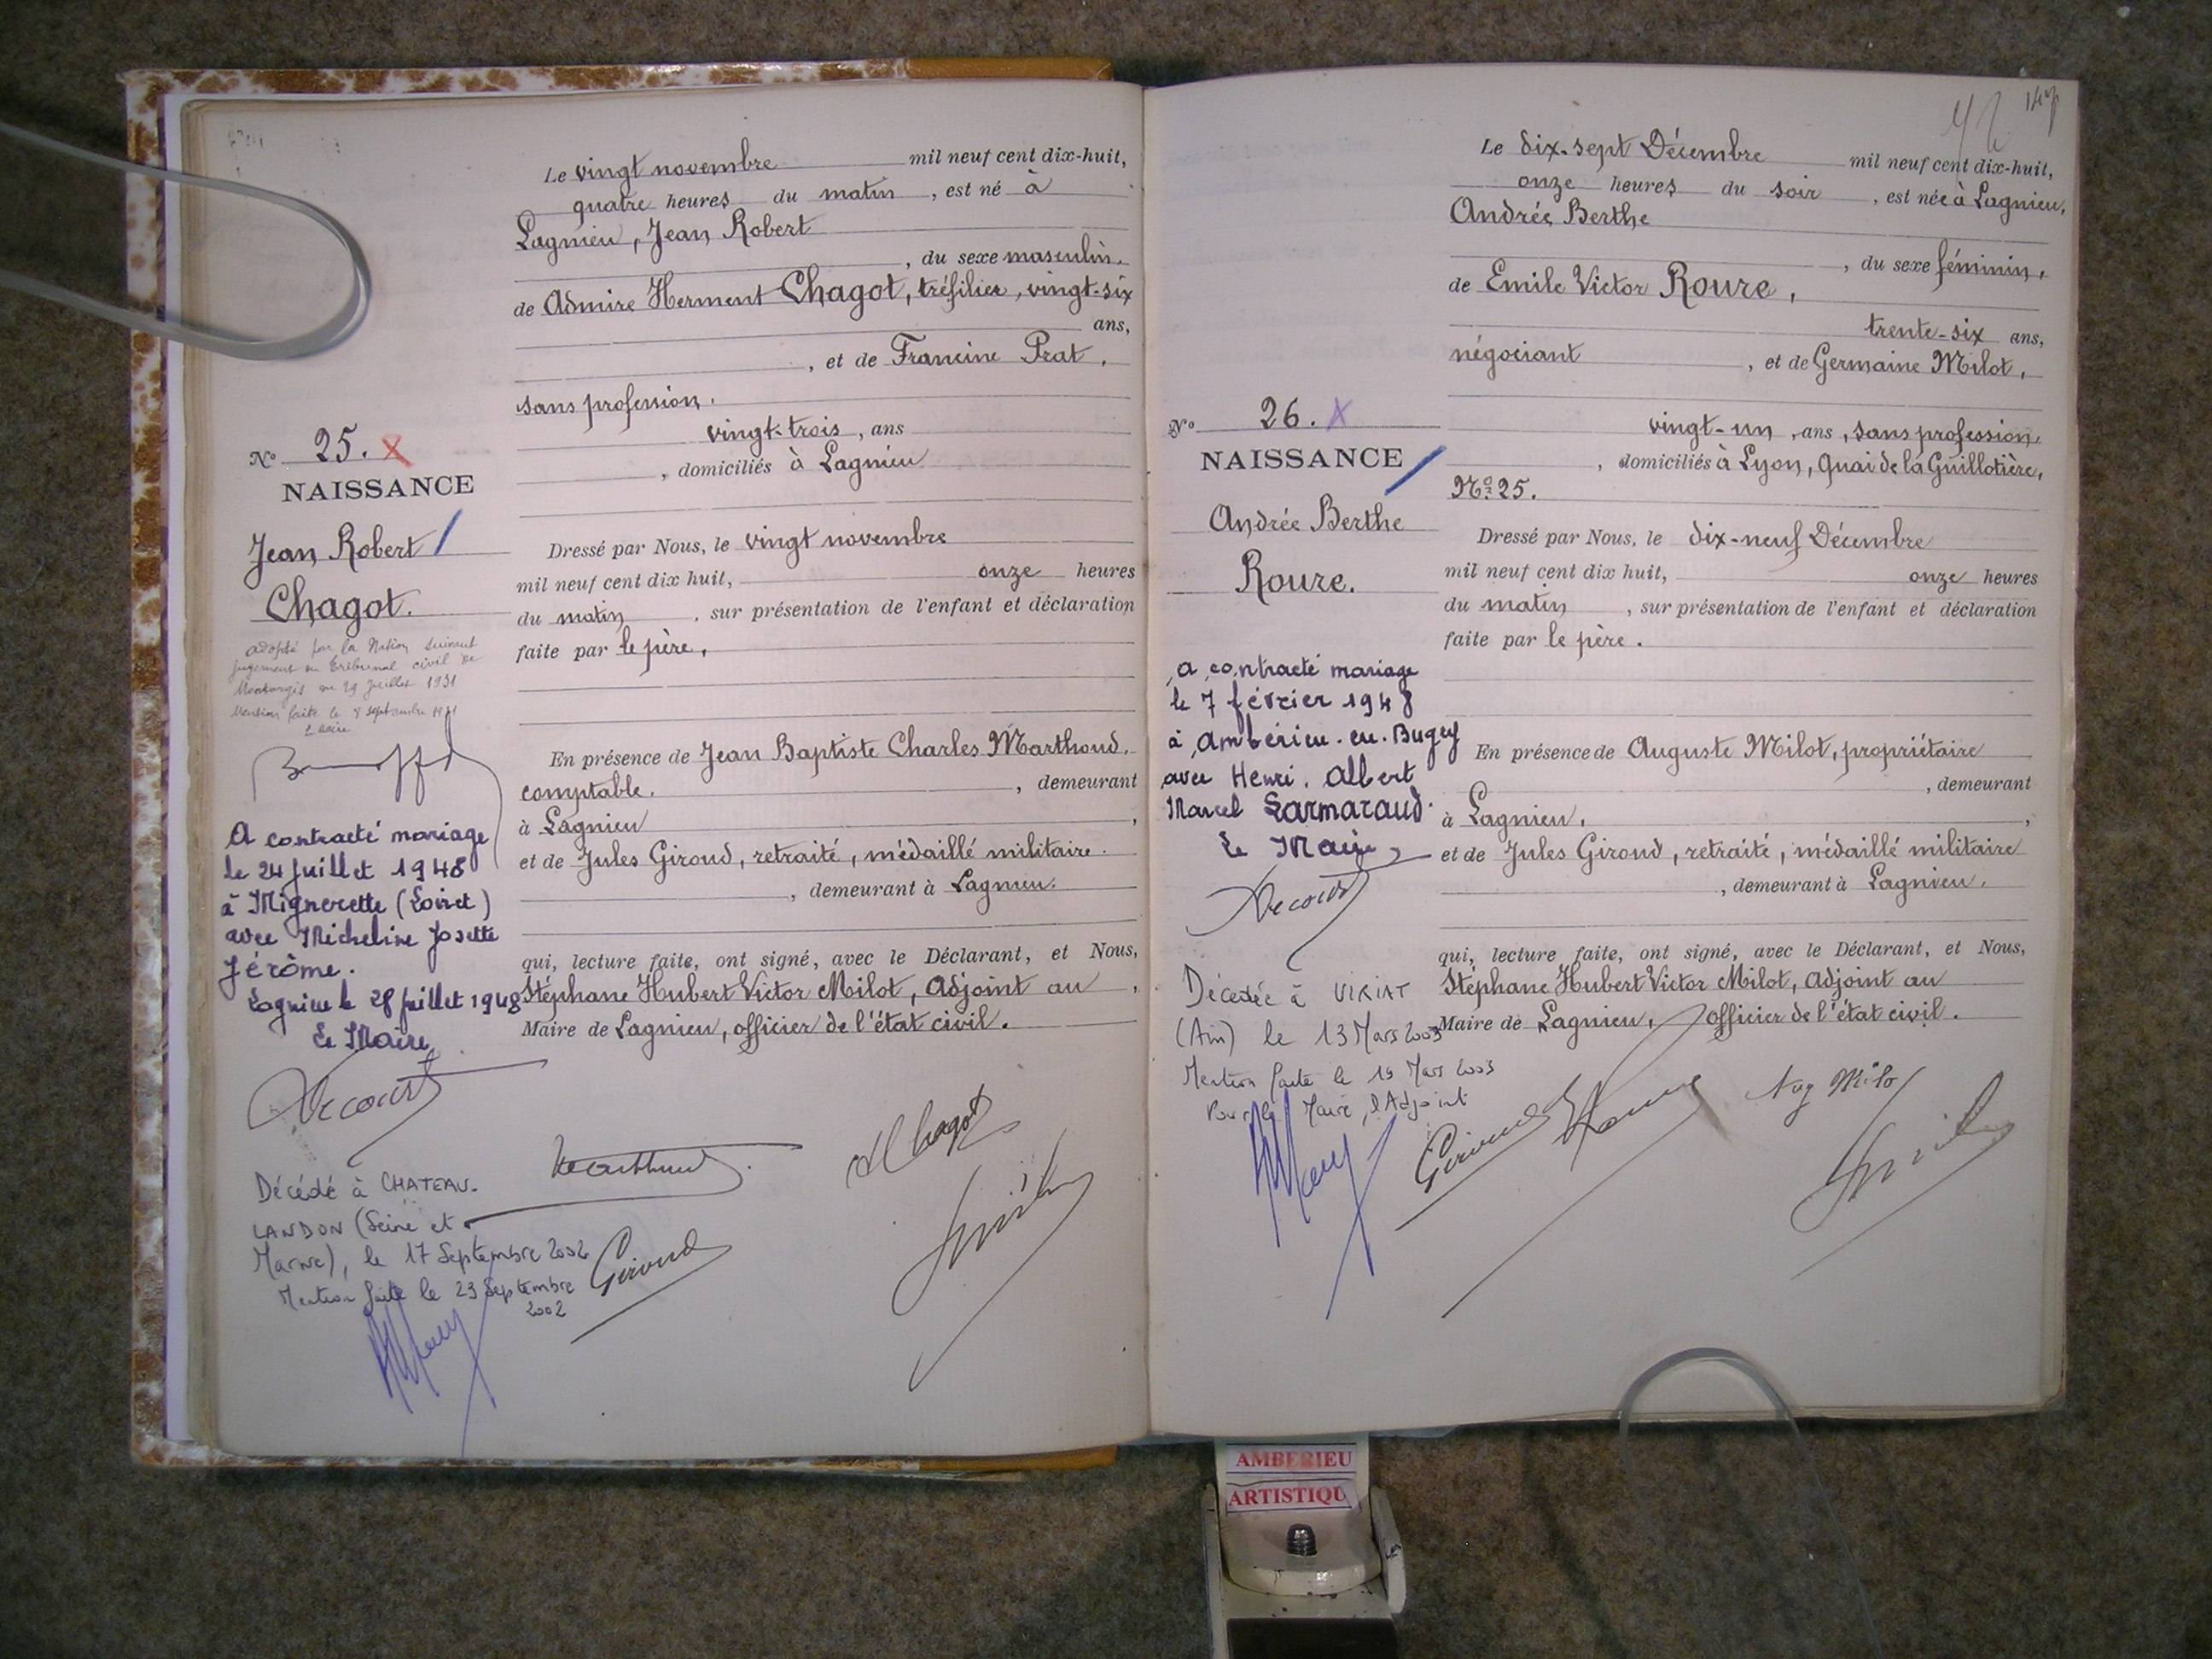 Le vingt novembre mil neuf cent dix-huit,
quatre heures du matin, est né à
Lagnieu, Jean Robert
, du sexe masculin.
de Admire Herment Chagot, tréfilier, vingt-six
ans,
, et de Francine Prat,
sans profession.
vingt-trois, ans
, domiciliés à Lagnieu
No 25. X
NAISSANCE
Jean Robert
Chagot.
adopté par la Nation suivant
jugement du tribunal civil de
Montargis du 29 juillet 1931
Mention faite le 8 septembre 1931
Dressé par Nous, le vingt novembre
mil neuf cent dix huit, onze heures
du matin, sur présentation de l'enfant et déclaration
faite par le père,
En présence de Jean Baptiste Charles Marthoud,
comptable. , demeurant
à Lagnieu,
et de Jules Giroud, retraité, médaillé militaire.
, demeurant à Lagnieu.
qui, lecture faite, ont signé, avec le Déclarant, et Nous,
Stéphane Hubert Victor Milot, Adjoint au,
Maire de Lagnieu, officier de l'état civil.
A contracté mariage
le 24 juillet 1948
à Mignerette (Loiret)
avec Micheline Josette
Jérôme.
Lagnieu le 28 juillet 1948
Le Maire
Décédé à CHATEAU-
LANDON (Seine et
Marne), le 17 Septembre 2002
Mention faite le 23 Septembre
2002
Marthoud
AChagot
Giroud
147
Le dix-sept Décembre mil neuf cent dix-huit,
onze heures du soir, est née à Lagnieu,
Andrée Berthe
, du sexe féminin,
de Emile Victor Roure,
trente-six ans,
négociant, et de Germaine Milot,
vingt-un, ans, sans profession,
, domiciliés à Lyon, Quai de la Guillotière,
No 25.
No 26. X
NAISSANCE
Andrée Berthe
Roure.
Dressé par Nous, le dix-neuf Décembre
mil neuf cent dix huit, onze heures
du matin, sur présentation de l'enfant et déclaration
faite par le père.
En présence de Auguste Milot, propriétaire
, demeurant
à Lagnieu,
et de Jules Giroud, retraité, médaillé militaire
, demeurant à Lagnieu.
qui, lecture faite, ont signé, avec le Déclarant, et Nous,
Stéphane Hubert Victor Milot, Adjoint au
Maire de Lagnieu, officier de l'état civil.
a contracté mariage
le 7 février 1948
à Ambérieu-en-Bugey
avec Henri. Albert
Marcel Larmaraud.
Le Maire,
Décédée à VIRIAT
(Ain) le 13 Mars 2003
Mention faite le 19 Mars 2003
Pour le Maire, l'Adjoint
Giroud
Aug Milot
AMBERIEU
ARTISTIQU